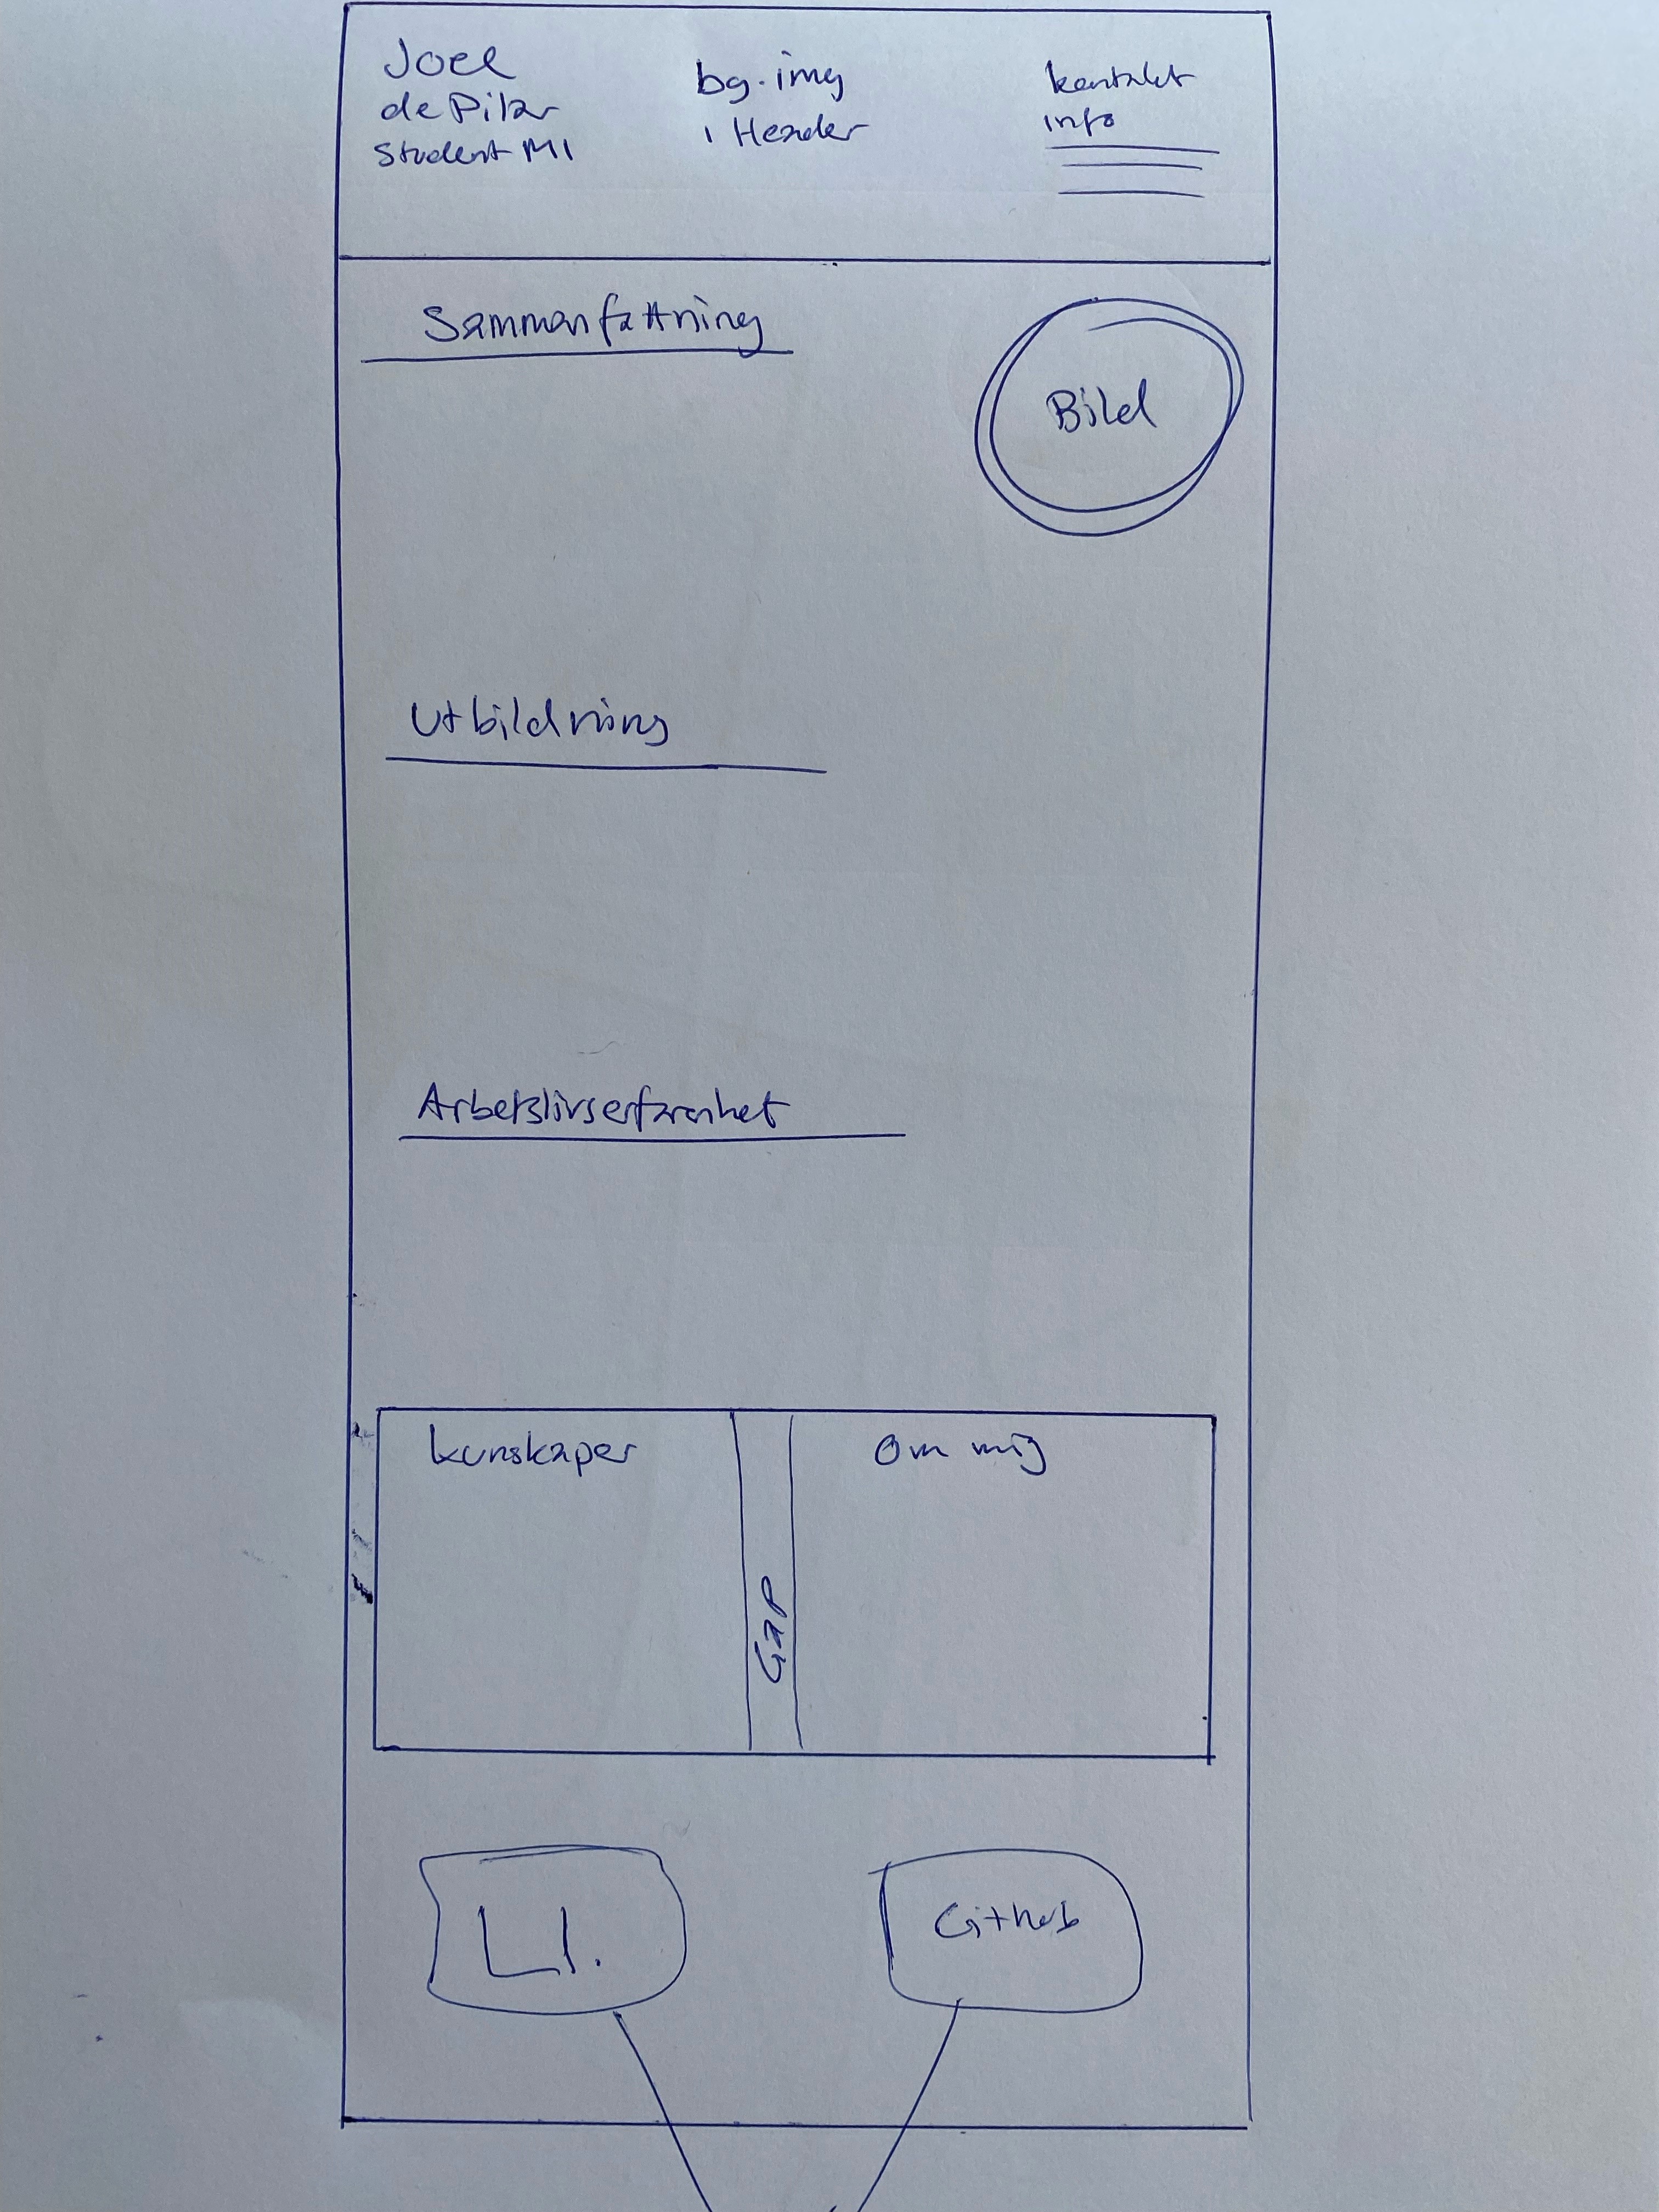 Joel
de Pilar
Student MI
bg.img
i Header
kontakt
info
Sammanfattning
Bild
Utbildning
Arbetslivserfarenhet
kunskaper
Gap
Om mig
LI.
Github